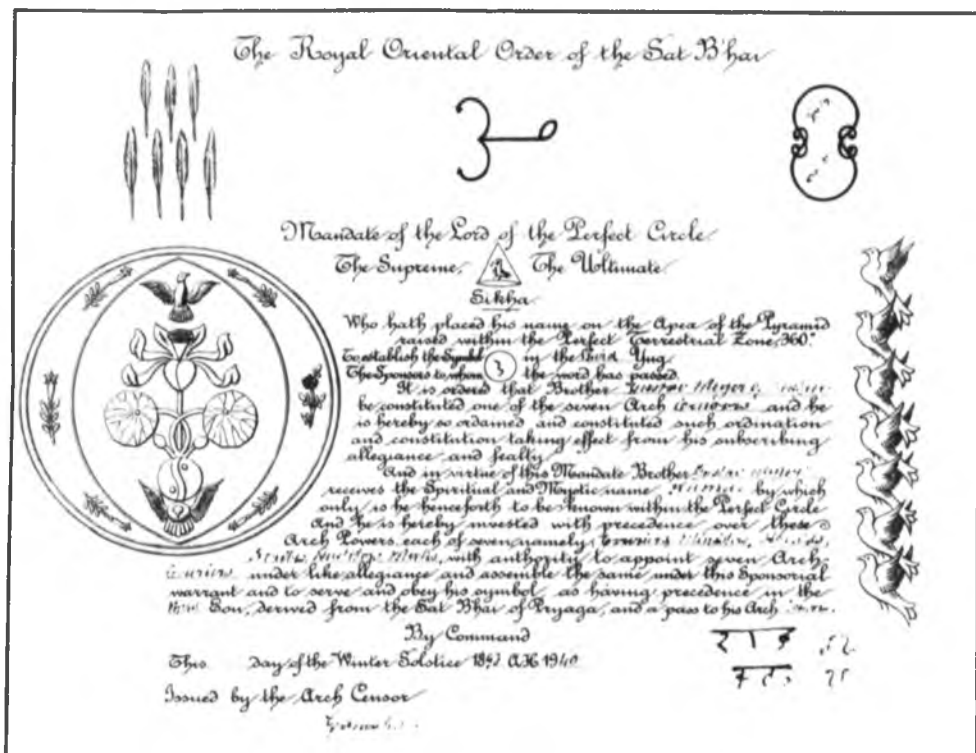 The Royal Oriental Order of the Sat B'hai
Mandate of the Lord of the Perfect Circle
The Supreme, The Ultimate
Sikha
Who hath placed his name on the Apex of the Pyramid
raised within the Perfect Terrestrial Zone, 360°
To establish the Symbol 3 in the third Yug
The Sponsors to whom the word has passed.
It is ordered that Brother
be constituted one of the seven Arch Censors and he
is hereby so ordained and constituted such ordination
and constitution taking effect from his subscribing
allegiance and fealty
And in virtue of this Mandate Brother
receives the Spiritual and Mystic name by which
only is he henceforth to be known within the Perfect Circle
And he is hereby invested with precedence over these
Arch Powers each of seven, namely,
with authority to appoint seven Arch
Couriers under like allegiance and assemble the same under this Sponsorial
warrant and to serve and obey his symbol, as having precedence in the
Eon, derived from the Sat Bhai of Pryaga, and a pass to his Arch
By Command
This day of the Winter Solstice
Issued by the Arch Censor